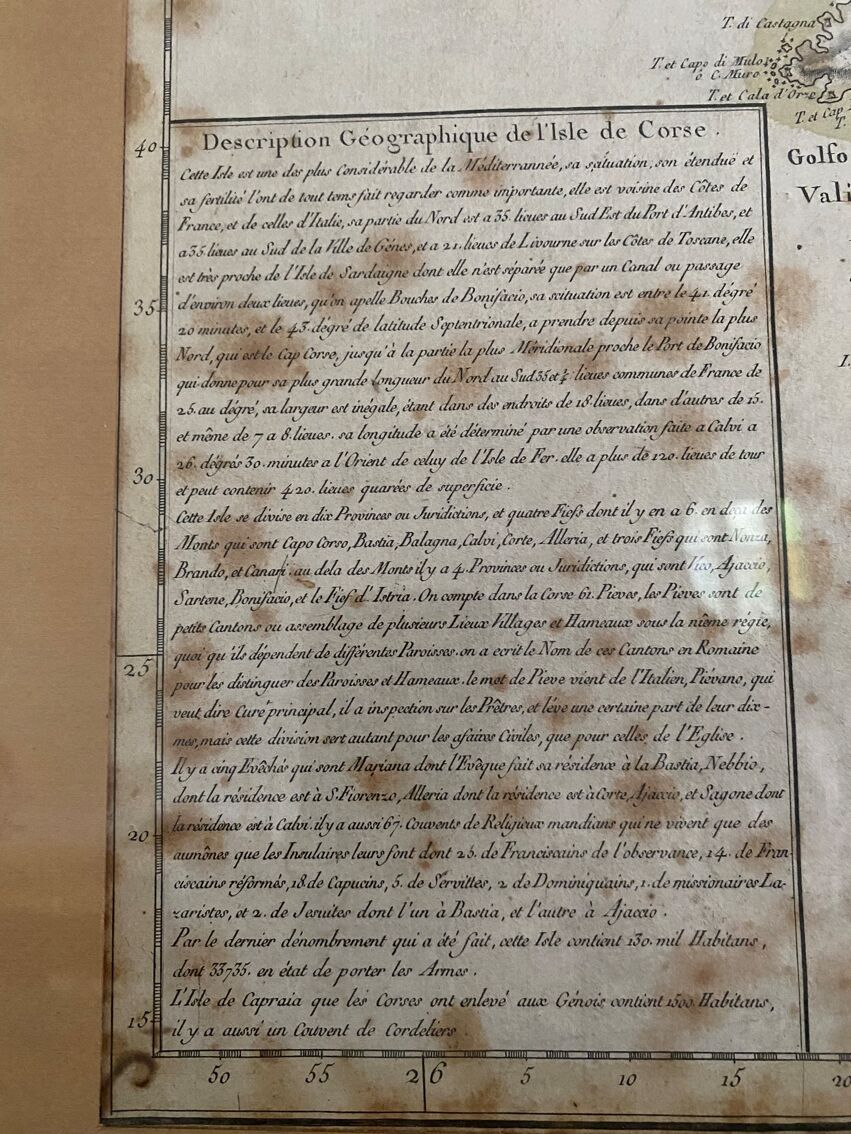 T. di Castagna
T. et Capo di Mulo
ò C. Muro
T. et Cala d'Orzo
T. et Cap
T.
Golfo
Vali
Description Géographique de l'Isle de Corse .
Cette Isle est une des plus Considérable de la Méditerrannée, sa situation, son étenduë et
sa fertilité l'ont de tout tems fait regarder comme importante, elle est voisine des Côtes de
France, et de celles d'Italie, sa partie du Nord est a 35. lieues au Sud Est du Port d'Antibes, et
a 35 lieues au Sud de la Ville de Génes, et a 21. lieues de Livourne sur les Côtes de Toscane, elle
est très proche de l'Isle de Sardaigne dont elle n'est séparée que par un Canal ou passage
d'environ deux lieues, qu'on apelle Bouches de Bonifacio, sa scituation est entre le 41. dégré
20 minutes, et le 43. dégré de latitude Septentrionale, a prendre depuis sa pointe la plus
Nord, qui est le Cap Corse, jusqu'à la partie la plus Méridionale proche le Port de Bonifacio
qui donne pour sa plus grande longueur du Nord au Sud 35 et ¼ lieues communes de France de
25. au dégré, sa largeur est inégale, étant dans des endroits de 18. lieues, dans d'autres de 15.
et même de 7 a 8. lieues. sa longitude a été déterminé par une observation faite a Calvi a
26. dégrés 30. minutes a l'Orient de celuy de l'Isle de Fer. elle a plus de 120. lieues de tour
et peut contenir 420. lieues quarées de superficie .
Cette Isle se divise en dix Provinces ou Juridictions, et quatre Fiefs dont il y en a 6. en deça des
Monts qui sont Capo Corso, Bastia, Balagna, Calvi, Corte, Alleria, et trois Fiefs qui sont Nonza,
Brando, et Canari. au dela des Monts il y a 4. Provinces ou Juridictions, qui sont Vico, Ajaccio,
Sartene, Bonifacio, et le Fief d'Istria. On compte dans la Corse 61. Pieves, les Pieves sont de
petits Cantons ou assemblage de plusieurs Lieux Villages et Hameaux sous la même régie,
quoi qu'ils dépendent de différentes Paroisses. on a ecrit le Nom de ces Cantons en Romaine
pour les distinguer des Paroisses et Hameaux. le mot de Pieve vient de l'Italien, Piévano, qui
veut dire Curé principal, il a inspection sur les Prêtres, et léve une certaine part de leur dix-
mes, mais cette division sert autant pour les afaires Civiles, que pour celles de l'Eglise .
Il y a cinq Evêchés qui sont Mariana dont l'Evêque fait sa résidence à la Bastia, Nebbio,
dont la résidence est à S. Fiorenzo, Alleria dont la résidence est à Corte, Ajaccio, et Sagone dont
la résidence est à Calvi. il y a aussi 67. Couvents de Religieux mandians qui ne vivent que des
aumônes que les Insulaires leurs font dont 25. de Franciscains de l'observance, 14. de Fran-
ciscains réformés, 18. de Capucins, 5. de Servittes, 2 de Dominiquains, 1. de missionaires La-
zaristes, et 2. de Jesuites dont l'un à Bastia, et l'autre à Ajaccio .
Par le dernier dénombrement qui a été fait, cette Isle contient 130. mil Habitans,
dont 33735. en état de porter les Armes .
L'Isle de Capraia que les Corses ont enlevé aux Génois contient 1500. Habitans,
il y a aussi un Couvent de Cordeliers .
40
35
30
25
20
15
50 55 26 5 10 15 20